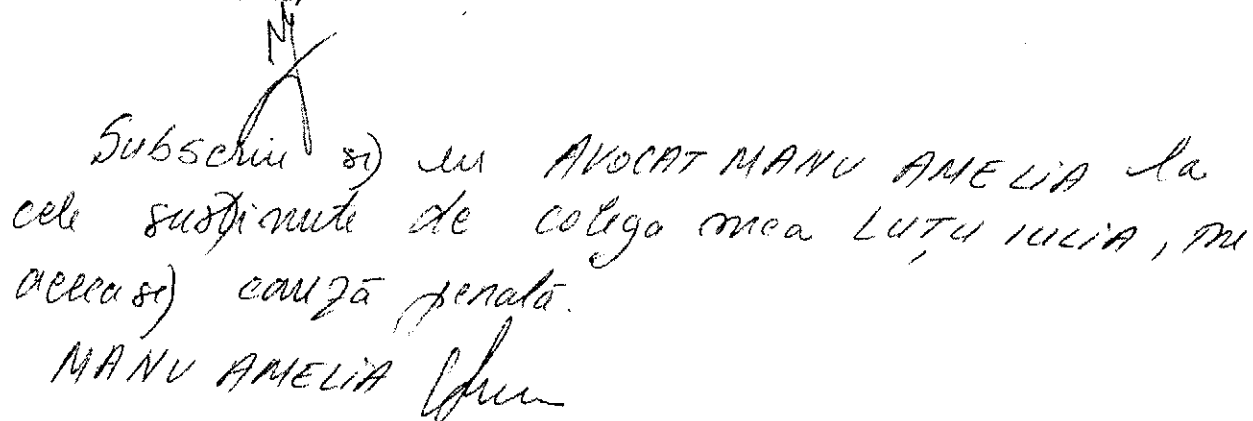 Subscriu și eu AVOCAT MANU AMELIA la
cele susținute de colega mea LUȚU IULIA, în
aceeași cauză penală.
MANU AMELIA